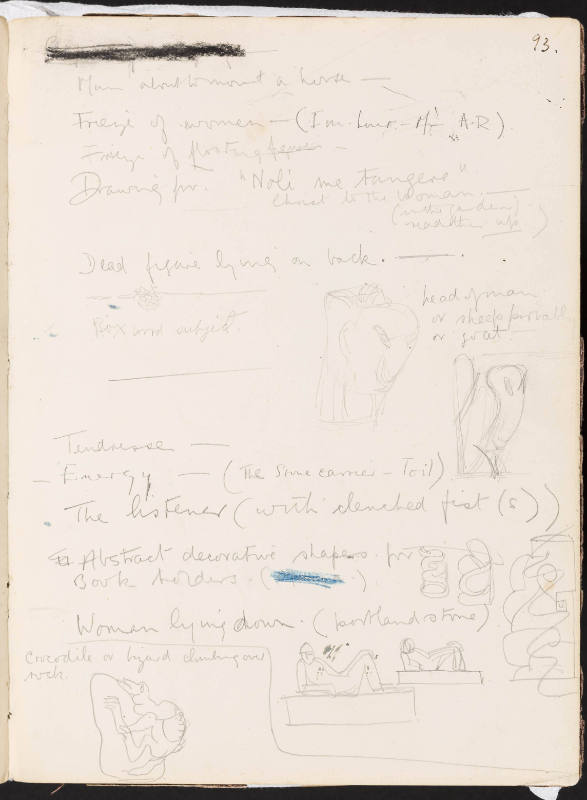 93.
Man about to mount a horse —
Frieze of women — (I in. hour - A.R)
Frieze of floating figures -
Drawing for. "Noli me tangere"
Christ to the Woman. —
(in the garden)
Dead figure lying on back. —
head of man
or sheep
or goat.
Box wood subject.
Tenderness —
— Energy — (The Stone carrier — Toil)
The listener (with clenched fist (s))
Abstract decorative shapes for
Book holders. ( )
Woman lying down. (portland stone)
Crocodile or lizard climbing over
rock.